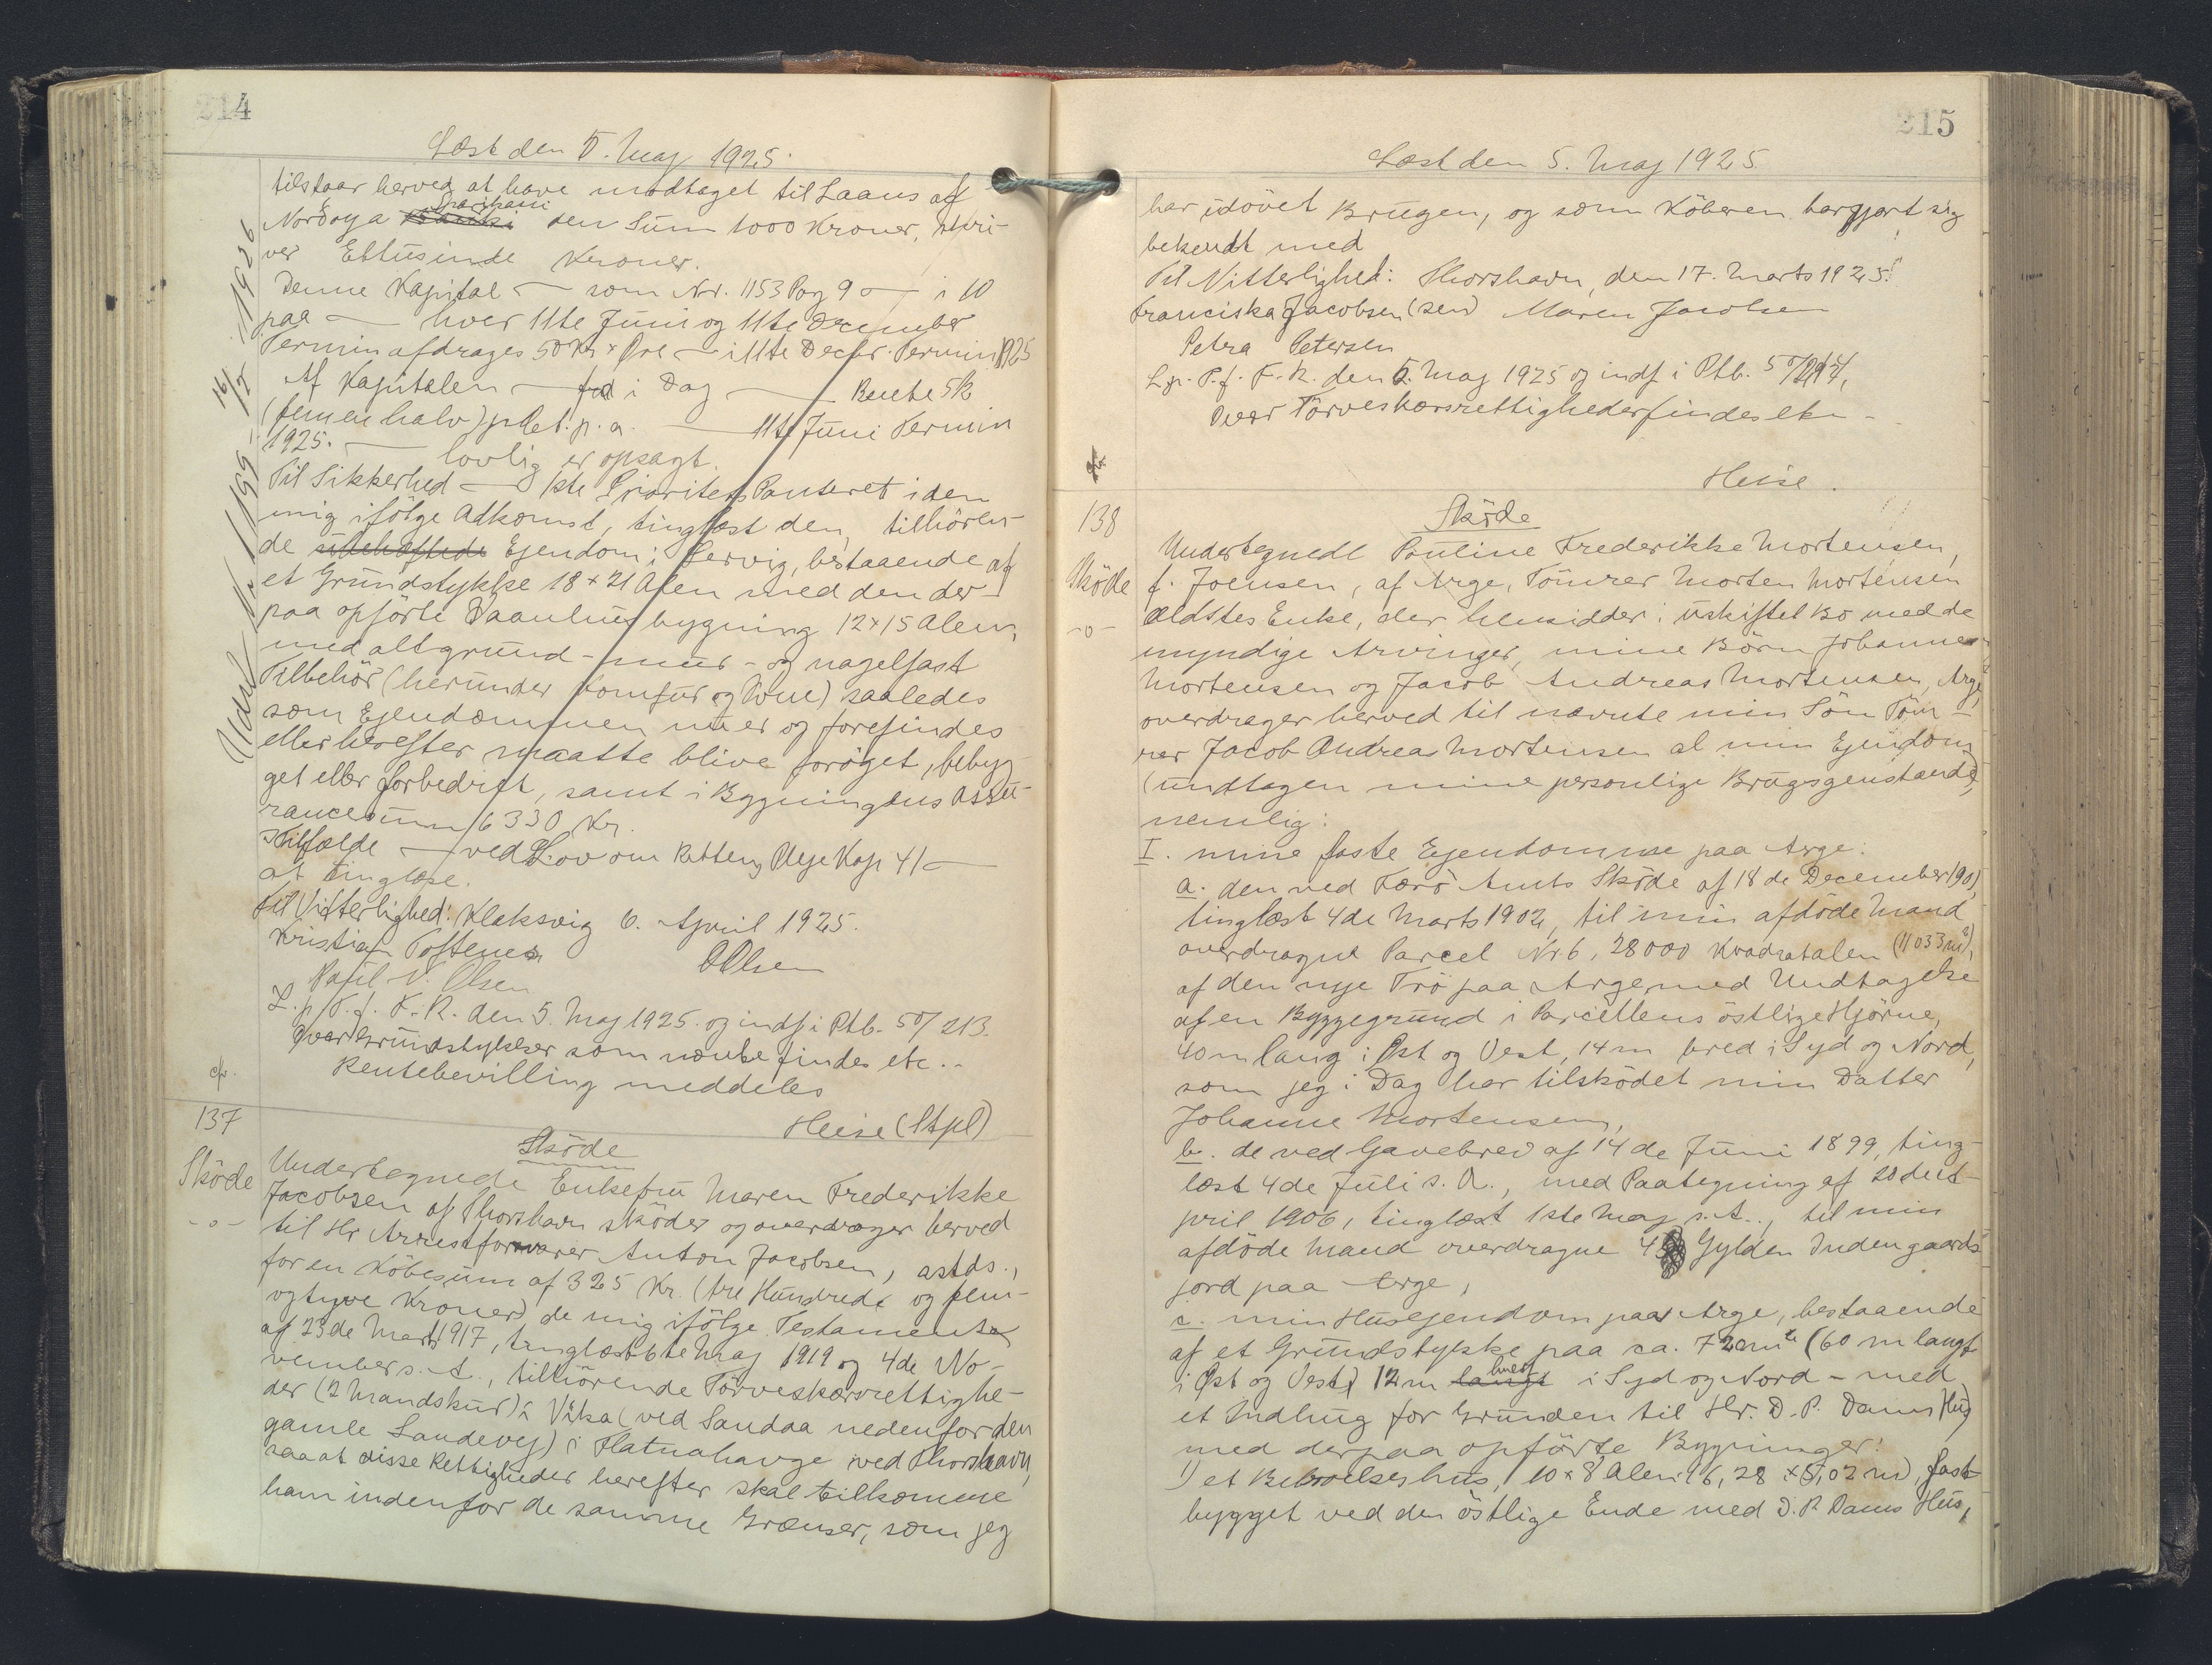 214
Læst den 5. Maj 1925.
tilstaar herved at have modtaget til Laans af
Norðoya Banki Sparikassi den Sum 1000 Kroner, skri-
ver Ettusinde Kroner.
Denne Kapital — som Nr. 1153 Pag 9 — i 10
paa — hver 11te Juni og 11te December
Termin afdrages 50 Kr × Øre — i 11te Decbr. Termin 1925
Af Kapitalen — fra i Dag — Rente 5½
(fem en halv) pCt. p. a. — 11te Juni Termin
1925. — lovlig er opsagt.
Til Sikkerhed — 1ste Prioritets Panteret i den
mig ifölge Adkomst, tinglæst den, tilhören-
de ubehæftede Ejendom i Servig, bestaaende af
et Grundstykke 18 × 21 Alen med den der-
paa opförte Vaanhusbygning 12 × 15 Alen,
med alt grund- mur- og nagelfast
Tilbehör (herunder Komfur og Ovne) saaledes
som Ejendommen nu er og forefindes
eller herefter maatte blive foröget, bebyg-
get eller forbedret, samt i Bygningens Assu-
rancesum 6330 Kr.
I Tilfælde — ved Lov om Rettens Pleje Kap 41 —
at tinglæse.
Til Vitterlighed: Klaksvig 6. April 1925.
Kristian Toftenes OOlsen
Poul N. Olsen
L. p. T. f. F. R. den 5. Maj 1925. og indf i Ptb. 50/213.
Over Grundstykker som nævnte findes etc..
Rentebevilling meddeles
Heise (Stpl)
cfr.
137
Sköde
-o-
Sköde
Undertegnede Enkefru Maren Frederikke
Jacobsen af Thorshavn sköder og overdrager herved
til Hr Arrestforvarer Anton Jacobsen, astds.,
for en Köbesum af 325 Kr. (tre Hundrede og fem-
ogtyve Kroner) de mig ifölge Testamente
af 23de Marts 1917, tinglæst 6te Maj 1919 og 4de No-
vember s. A., tilhörende Törveskærsrettighe-
der (2 Mandskur) i Vika (ved Sandaa nedenfor den
gamle Landevej) i Flatnahauge ved Thorshavn,
saa at disse Rettigheder herefter skal tilkomme
ham indenfor de samme Grænser, som jeg
215
Læst den 5. Maj 1925.
har udövet Brugen, og som Köberen har gjort sig
bekendt med
Til Vitterlighed: Thorshavn, den 17. Marts 1925.
Franciska Jacobsen (sen) Maren Jacobsen
Petra Petersen
L. p. T. f. F. R. den 5. Maj 1925 og indf i Ptb. 50/214,
Over Törveskærsrettigheder findes etc -
Heise.
cfr.
138
Sköde
-o-
Sköde
Undertegnede Pauline Frederikke Mortensen,
f. Joensen, af Arge, Tömrer Morten Mortensen
Ældstes Enke, der hensidder i uskiftet Bo med de
myndige Arvinger, mine Börn Johanne
Mortensen og Jacob Andreas Mortensen, Arge,
overdrager herved til nævnte min Sön Töm-
rer Jacob Andreas Mortensen al min Ejendom
(undtagen mine personlige Brugsgenstande),
nemlig:
I. mine faste Ejendomme paa Arge:
a. den ved Færö Amts Sköde af 18de December 1901,
tinglæst 4de Marts 1902, til min afdöde Mand
overdragne Parcel Nr. 6, 28000 Kvadratalen (11033 m²),
af den nye Trö paa Arge, med Undtagelse
af en Byggegrund i Parcellens östlige Hjörne,
40 m lang i Øst og Vest, 14 m bred i Syd og Nord,
som jeg i Dag har tilsködet min Datter
Johanne Mortensen,
b. de ved Gavebrev af 14de Juni 1899, ting-
læst 4de Juli s. A., med Paategning af 28de A-
pril 1906, tinglæst 1ste Maj s. A., til min
afdöde Mand overdragne 4 Gylden Indengaards
jord paa Arge,
c. min Husejendom paa Arge, bestaaende
af et Grundstykke paa ca. 720 m² (60 m langt
i Øst og Vest) 12 m langt bredt i Syd og Nord - med
et Indhug for Grunden til Hr. D. P. Dams Hus)
med derpaa opförte Bygninger:
1) et Beboelseshus, 10 × 8 Alen (6,28 × 5,02 m), fast
bygget ved den östlige Ende med D. P. Dams Hus,